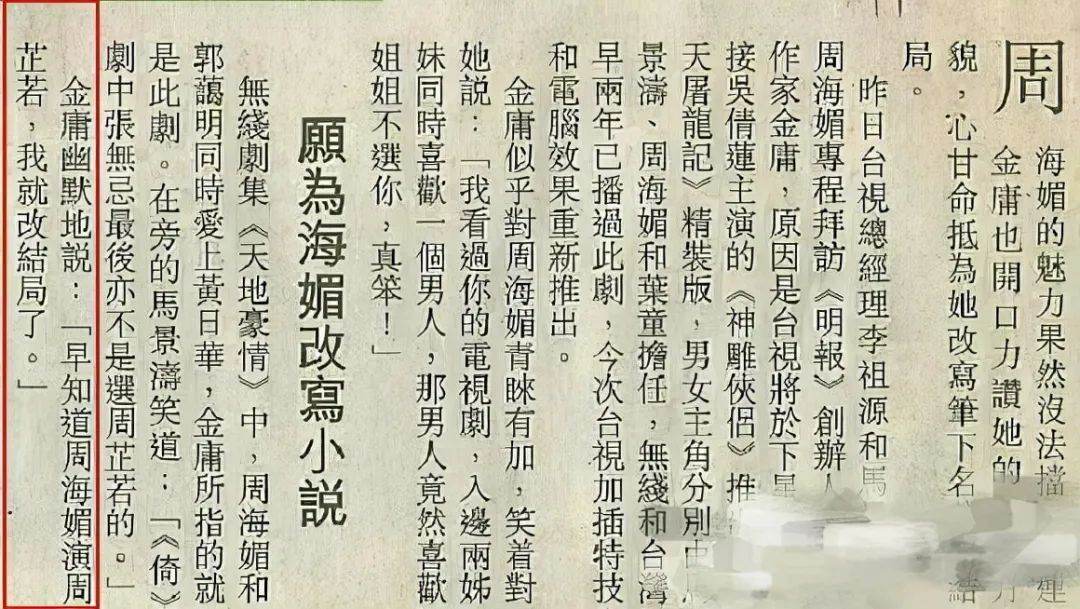 周海媚的魅力果然沒法擋 連
金庸也開口力讚她的
貌，心甘命抵為她改寫筆下名 結
局。
昨日台視總經理李祖源和馬
周海媚專程拜訪《明報》創辦人
作家金庸，原因是台視將於下星
接吳倩蓮主演的《神雕俠侶》推
天屠龍記》精裝版，男女主角分別由
景濤、周海媚和葉童擔任，無綫和台灣
早兩年已播過此劇，今次台視加插特技
和電腦效果重新推出。
金庸似乎對周海媚青睞有加，笑着對
她説：「我看過你的電視劇，入邊兩姊
妹同時喜歡一個男人，那男人竟然喜歡
姐姐不選你，真笨！」
願為海媚改寫小説
無綫劇集《天地豪情》中，周海媚和
郭藹明同時愛上黃日華，金庸所指的就
是此劇。在旁的馬景濤笑道：「《倚》
劇中張無忌最後亦不是選周芷若的。」
金庸幽默地説：「早知道周海媚演周
芷若，我就改結局了。」